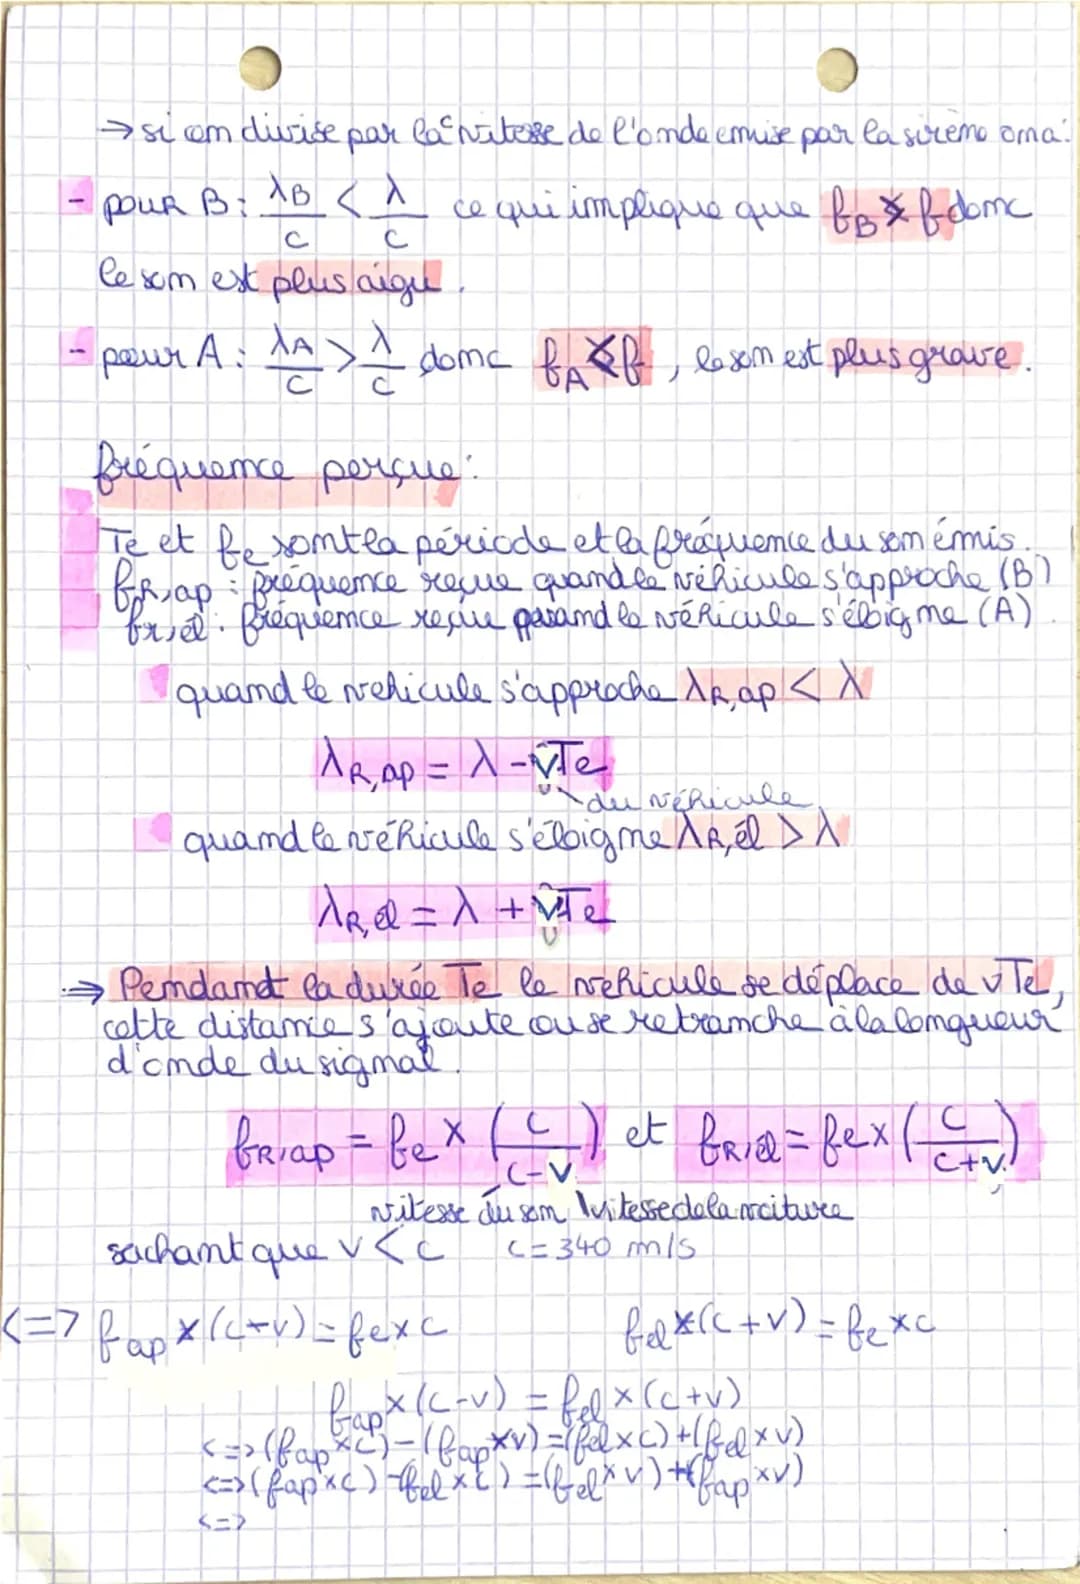 → si on divise par la vitesse de l'onde émise par la sirène on a:
- pour B: λB/c < λ/c ce qui implique que fB > f donc
le son est plus aigu.
- pour A: λA/c > λ/c donc fA < f, le son est plus grave.
fréquence perçue:
Te et fe sont la période et la fréquence du son émis.
fR,ap : fréquence reçue quand le véhicule s'approche (B)
fr,él : fréquence reçue quand le véhicule s'éloigne (A).
quand le vehicule s'approche λR,ap < λ
λR,ap = λ - vTe
du véhicule
quand le véhicule s'éloigne λR,él > λ
λR,él = λ + vTe
⇒ Pendant la durée Te le vehicule se déplace de vTe,
cette distance s'ajoute ou se retranche à la longueur
d'onde du signal.
fR,ap = fe × (c/(c-v)) et fR,él = fe × (c/(c+v))
vitesse du son vitesse de la voiture
sachant que v < c c = 340 m/s
<=> fap × (c-v) = fe × c fel × (c+v) = fe × c
fap × (c-v) = fel × (c+v)
<=> (fap × c) - (fap × v) = (fel × c) + (fel × v)
<=> (fap × c) - (fel × c) = (fel × v) + (fap × v)
<=>